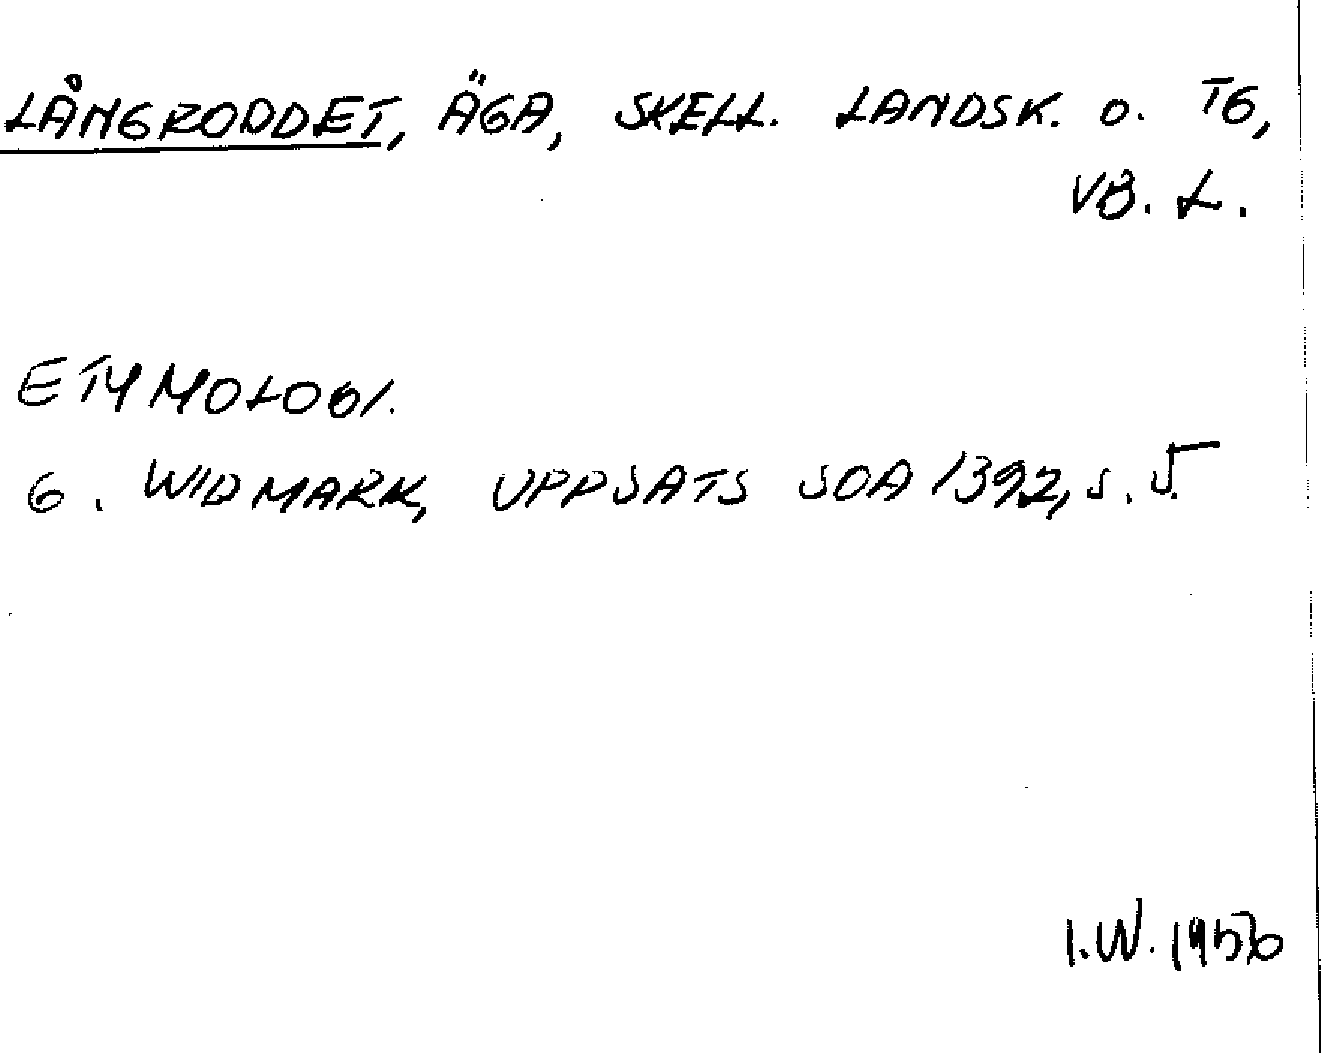 LÅNGRODDET, ÄGA, SKELL. LANDSK. O. TG,
VB. L.
ETYMOLOGI.
G. WIDMARK, UPPSATS SOA 1392, S. 5.
I.W. 1956